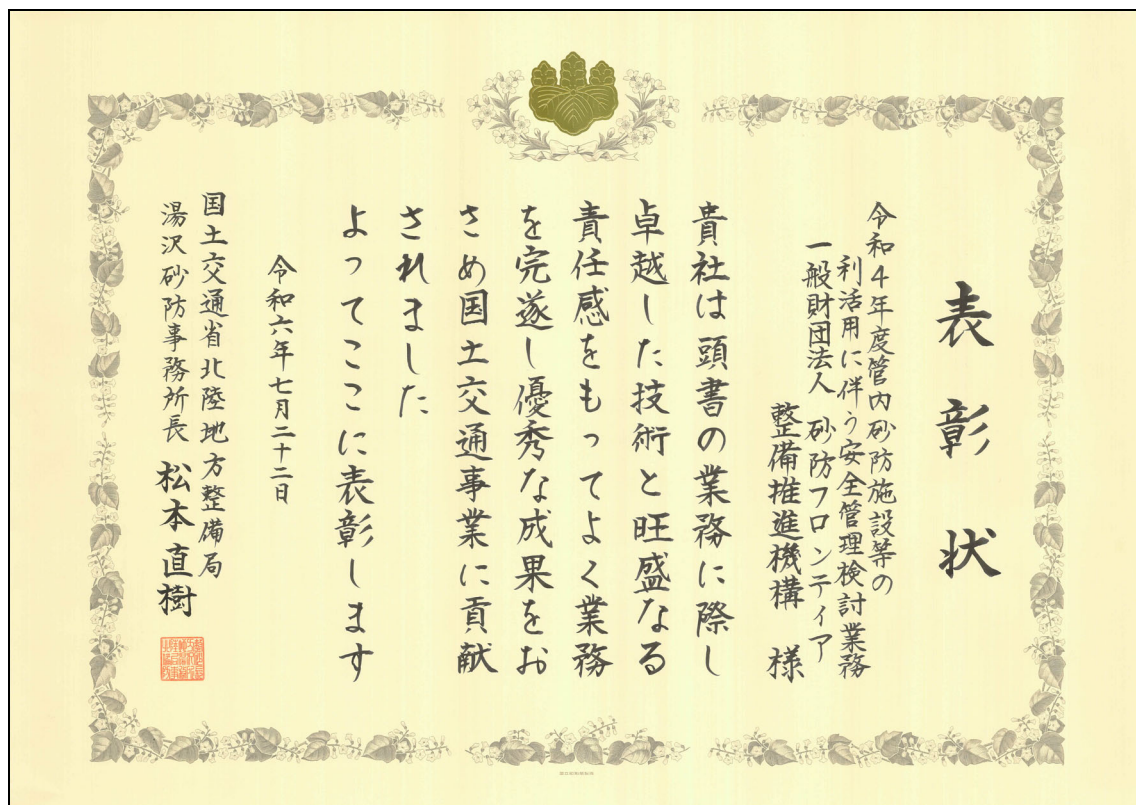 表彰状
令和４年度管内砂防施設等の
利活用に伴う安全管理検討業務
一般財団法人 砂防フロンティア
整備推進機構 様
貴社は頭書の業務に際し
卓越した技術と旺盛なる
責任感をもってよく業務
を完遂し優秀な成果をお
さめ国土交通事業に貢献
されました
よってここに表彰します
令和六年七月二十二日
国土交通省北陸地方整備局
湯沢砂防事務所長 松本直樹